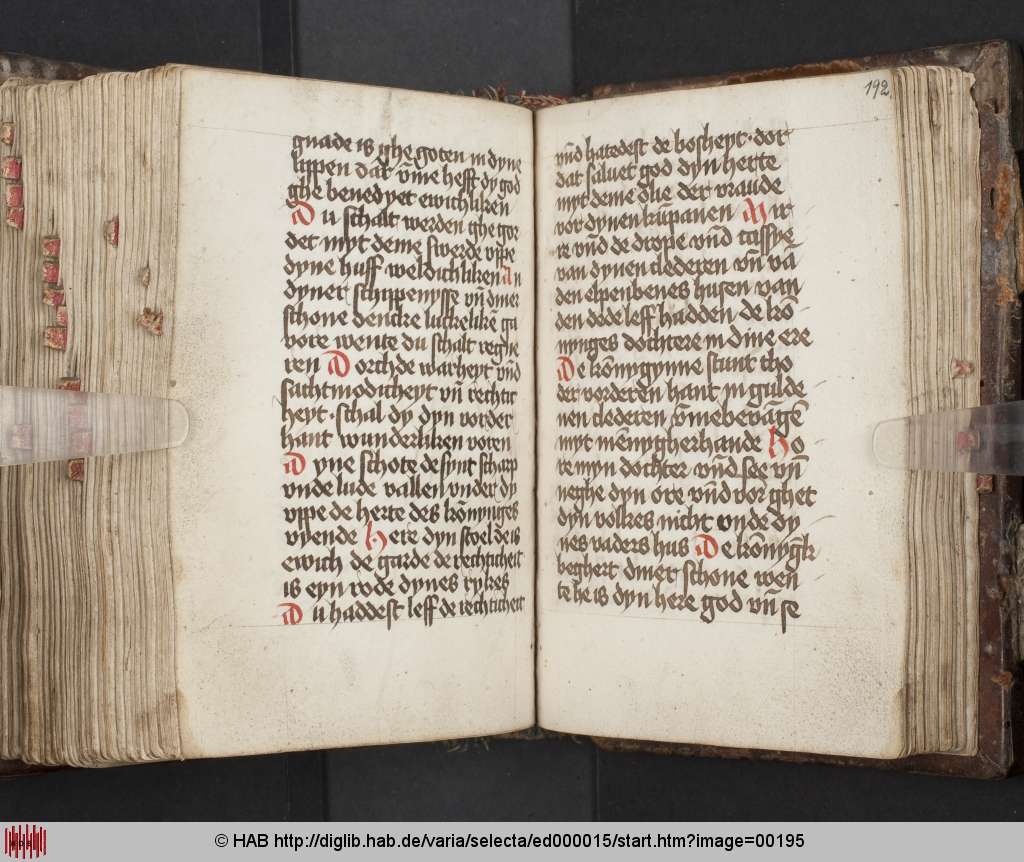 gnade is ghe goten in dyne
lippen dāt v̄me hefft dy god
ghe benedyet ewichliken
Du schalt werden ghe gor
det myt deme swerde vppe
dyne huff weldichliken In
dyner schippenysse vn̄ diner
schone dencke luckelikē ga
vore wente du schalt reghe
ren Dorch de warheyt vn̄d
sachtmodicheyt vn̄ rechtic
heyt · schal dy dyn vorder
hant wunderliken voren
Dyne schote de synt scharp
vnde lude vallen vnder dy
vppe de herte des kōnynges
vyende Here dyn stoel de is
ewich de garde de rechticheit
is eyn rode dynes rykes
Du haddest leff de rechticheit
192
vn̄d hatedest de bosheyt · dor
dat saluet god dyn herte
myt deme ōlie der vraude
vor dynen kūpanen Mir
re vn̄d de drope vn̄d cassye
van dynen clederen vn̄ vā
den elpenbenes husen van
den dede leff hadden de kō
nynges dochtere in dine ere
De kōnygynne stunt tho
der vorderen hant in gulde
nen clederen v̄mebevāgē
myt mēnygherhande Ho
re myn dochter vn̄d see vn̄
neghe dyn ore vn̄d vor ghet
dyn volkes nicht vnde dy
nes vaders hus De kōnyngk
beghert diner schone wen
te he is dyn here god vn̄ se
© HAB http://diglib.hab.de/varia/selecta/ed000015/start.htm?image=00195